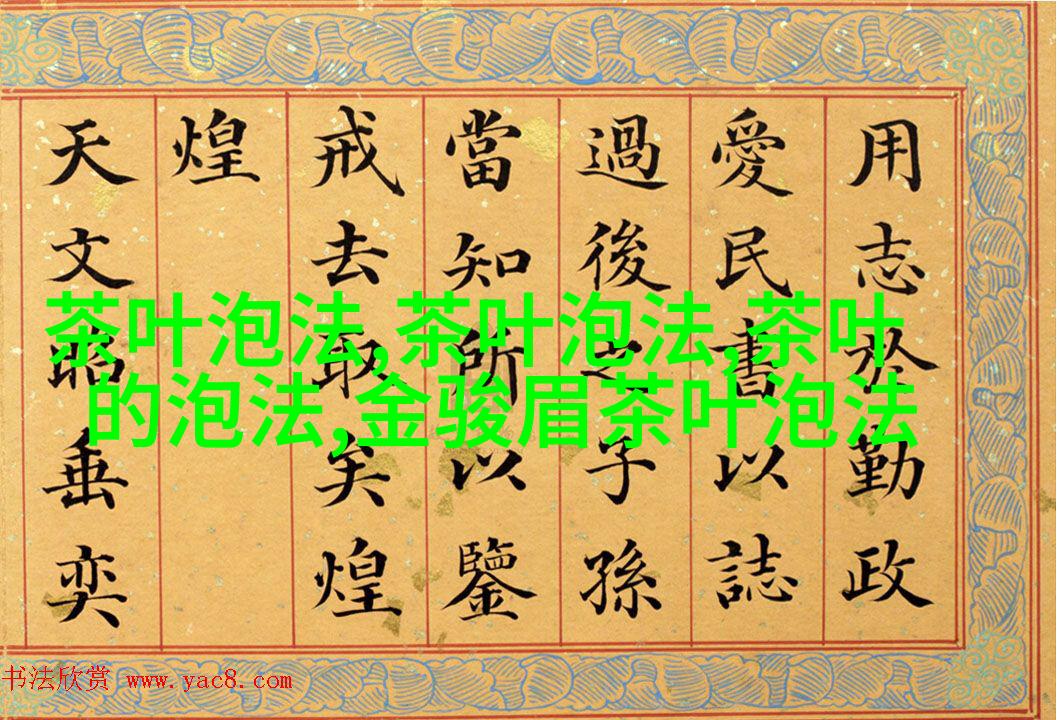 用志於勤政
愛民書以誌
過後之子孫
當知所以鑒
戒去取矣煌
煌
天文昭垂奕
茶叶泡法,茶叶泡法,茶叶
的泡法,金骏眉茶叶泡法
书法欣赏 www.yac8.com